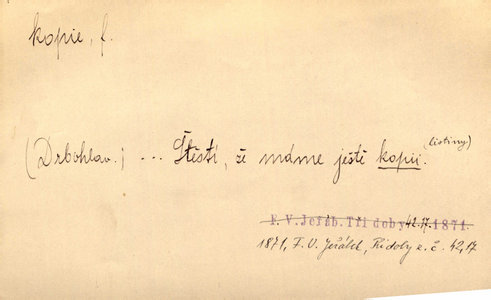 kopie, f.
(Drbohlav.) ... Štěstí, že máme ještě kopii.
(listiny)
F. V. Jeřáb. Tři doby 42.17. 1871.
1871, F. V. Jeřábek, Tři doby z. č. 42,17